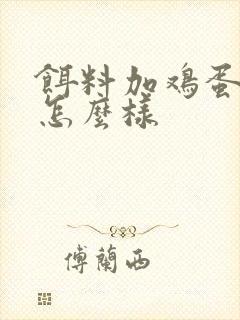 餌料加鸡蛋
怎麼樣
傅蘭西